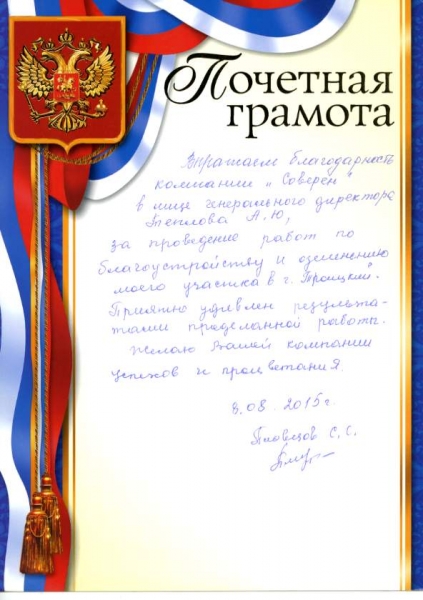 Почетная
грамота
Выражаем благодарность
компании "Соверен"
в лице генерального директора
Теплова А.Ю,
за проведение работ по
благоустройству и озеленению
моего участка в г. Троицкий.
Приятно удивлен результа-
тами проделанной работы.
Желаю Вашей компании
успехов и процветания.
3.08.2015г.
Пловцов С.С.